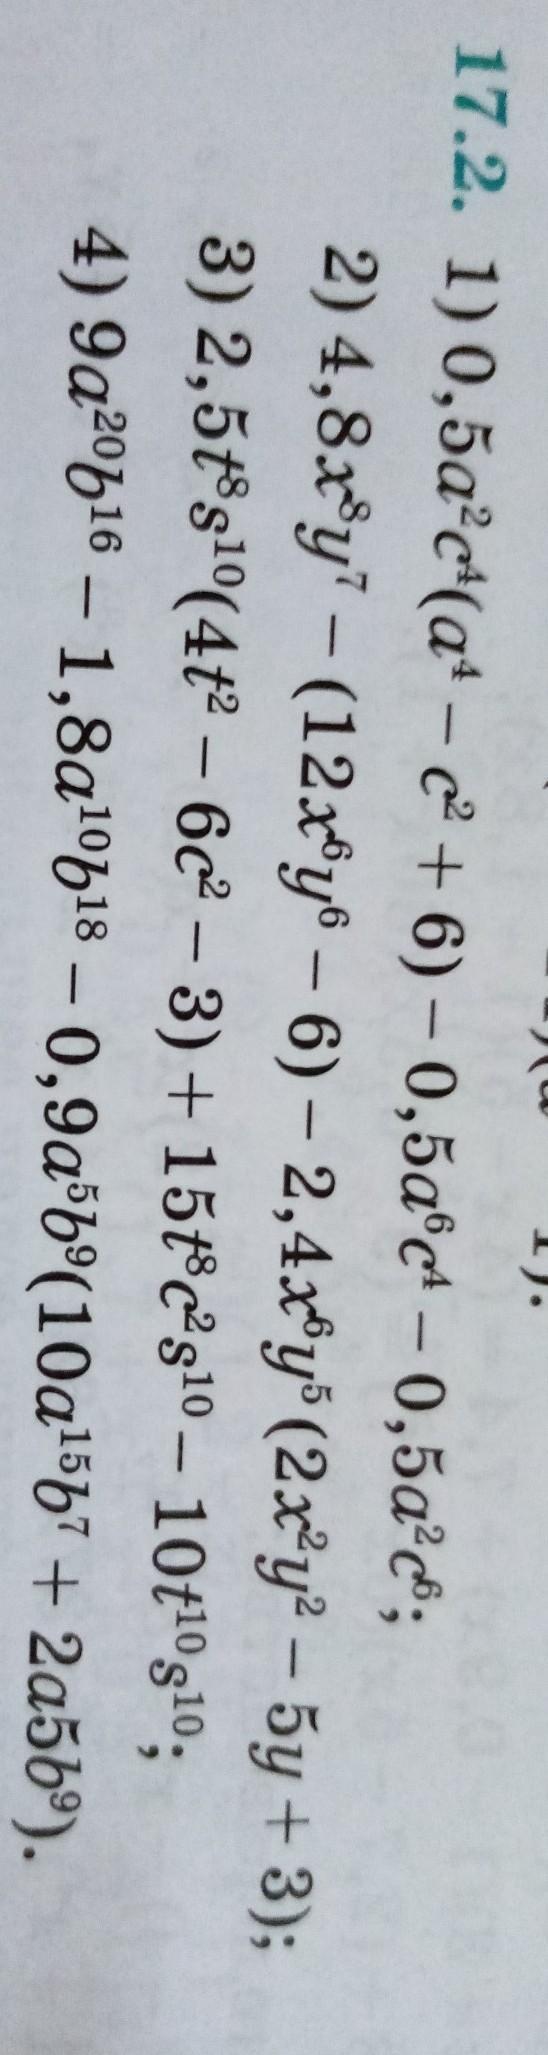 17.2. 1) 0,5a²c⁴(a⁴ – c² + 6) – 0,5a⁶c⁴ – 0,5a²c⁶;
2) 4,8x⁸y⁷ – (12x⁶y⁶ – 6) – 2,4x⁶y⁵(2x²y² – 5y + 3);
3) 2,5t⁸s¹⁰(4t² – 6c² – 3) + 15t⁸c²s¹⁰ – 10t¹⁰s¹⁰;
4) 9a²⁰b¹⁶ – 1,8a¹⁰b¹⁸ – 0,9a⁵b⁹(10a¹⁵b⁷ + 2a5b⁹).